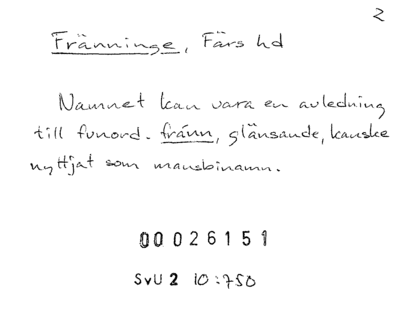 2
Fränninge, Färs hd
Namnet kan vara en avledning
till funord. fránn, glänsande, kanske
nyttjat som mansbinamn.
00026151
SvU 2 10:750